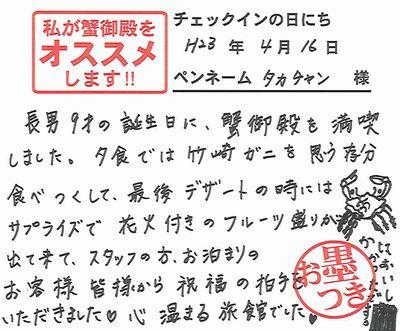 私が蟹御殿を
オススメ
します!!
チェックインの日にち
H23 年 4月 16日
ペンネーム タカチャン 様
長男9才の誕生日に、蟹御殿を満喫
しました。夕食では竹崎ガニを思う存分
食べつくして、最後デザートの時には
サプライズで花火付きのフルーツ盛りが
出て来て、スタッフの方、お泊まりの
お客様皆様から祝福の拍手を
いただきました♡心温まる旅館でした♡
お墨
つき